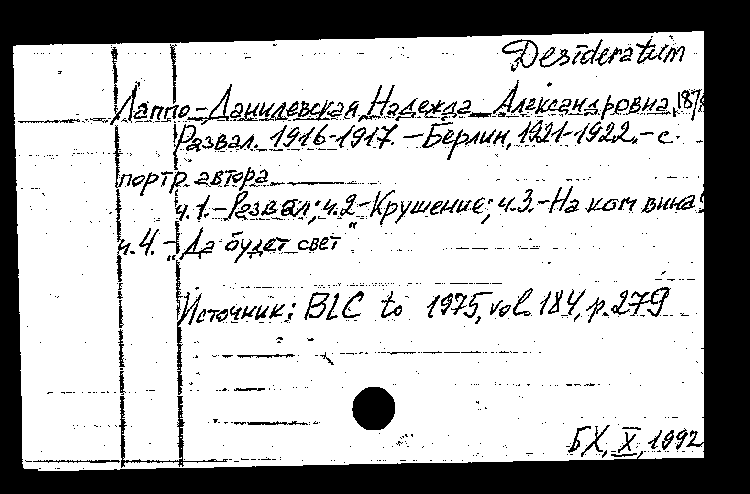 Desideratum
Лаппо-Данилевская, Надежда Александровна, 187
Развал. 1916-1917. - Берлин, 1921-1922. - с.
портр. автора
ч.1.-Развал; ч.2-Крушение; ч.3.-На ком вина?
ч.4.-„Да будет свет"
Источник: BLC to 1975, vol. 184, p. 279
БХ, X, 1992